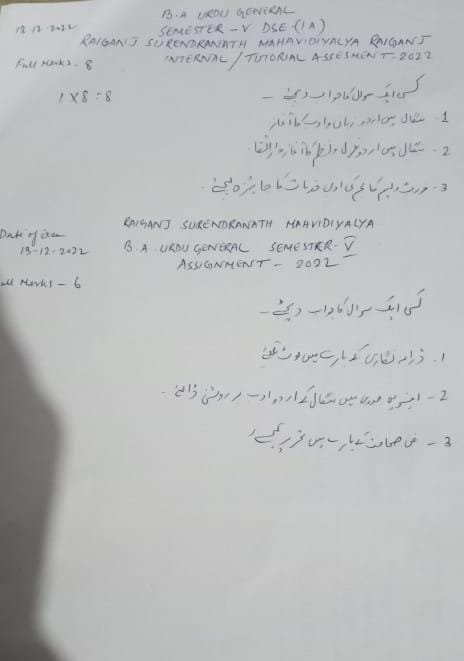 B.A URDU GENERAL
13.12.2022 SEMESTER - V DSE-(1A)
RAIGANJ SURENDRANATH MAHAVIDIYALYA RAIGANJ
Full Marks - 8 INTERNAL / TUTORIAL ASSESMENT-2022
1 X 8 = 8 کسی ایک سوال کا جواب دیجئے -
1. بنگال میں اردو زبان و ادب کا آغاز
2. بنگال میں اردو غزل و نظم کا آغاز و ارتقا.
3. فورٹ ولیم کالج کی ادبی خدمات کا جائزہ لیجئے.
RAIGANJ SURENDRANATH MAHVIDIYALYA
Date of Exam
13-12-2022 B.A. URDU GENERAL SEMESTRR-V
ASSIGNMENT - 2022
Full Marks - 6
کسی ایک سوال کا جواب دیجئے -
1. ڈرامہ نگاری کے بارے میں نوٹ لکھئے
2 - انیسویں صدی میں بنگال کے اردو ادب پر روشنی ڈالئے -
3 - کے بارے میں تحریر کیجیے